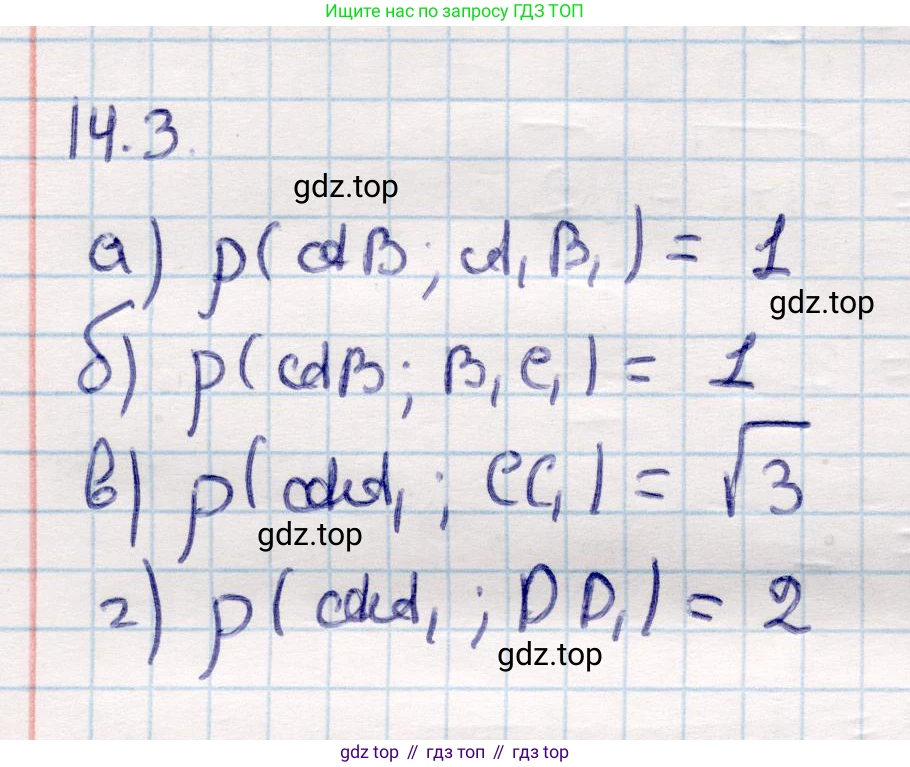 Ищите нас по запросу ГДЗ ТОП
14.3.
gdz.top
а) ρ(AB; A₁B₁) = 1
gdz.top
б) ρ(AB; B₁C₁) = 1
в) ρ(AA₁; CC₁) = √3
gdz.top
г) ρ(AA₁; DD₁) = 2
gdz.top
gdz top // гдз топ // gdz top